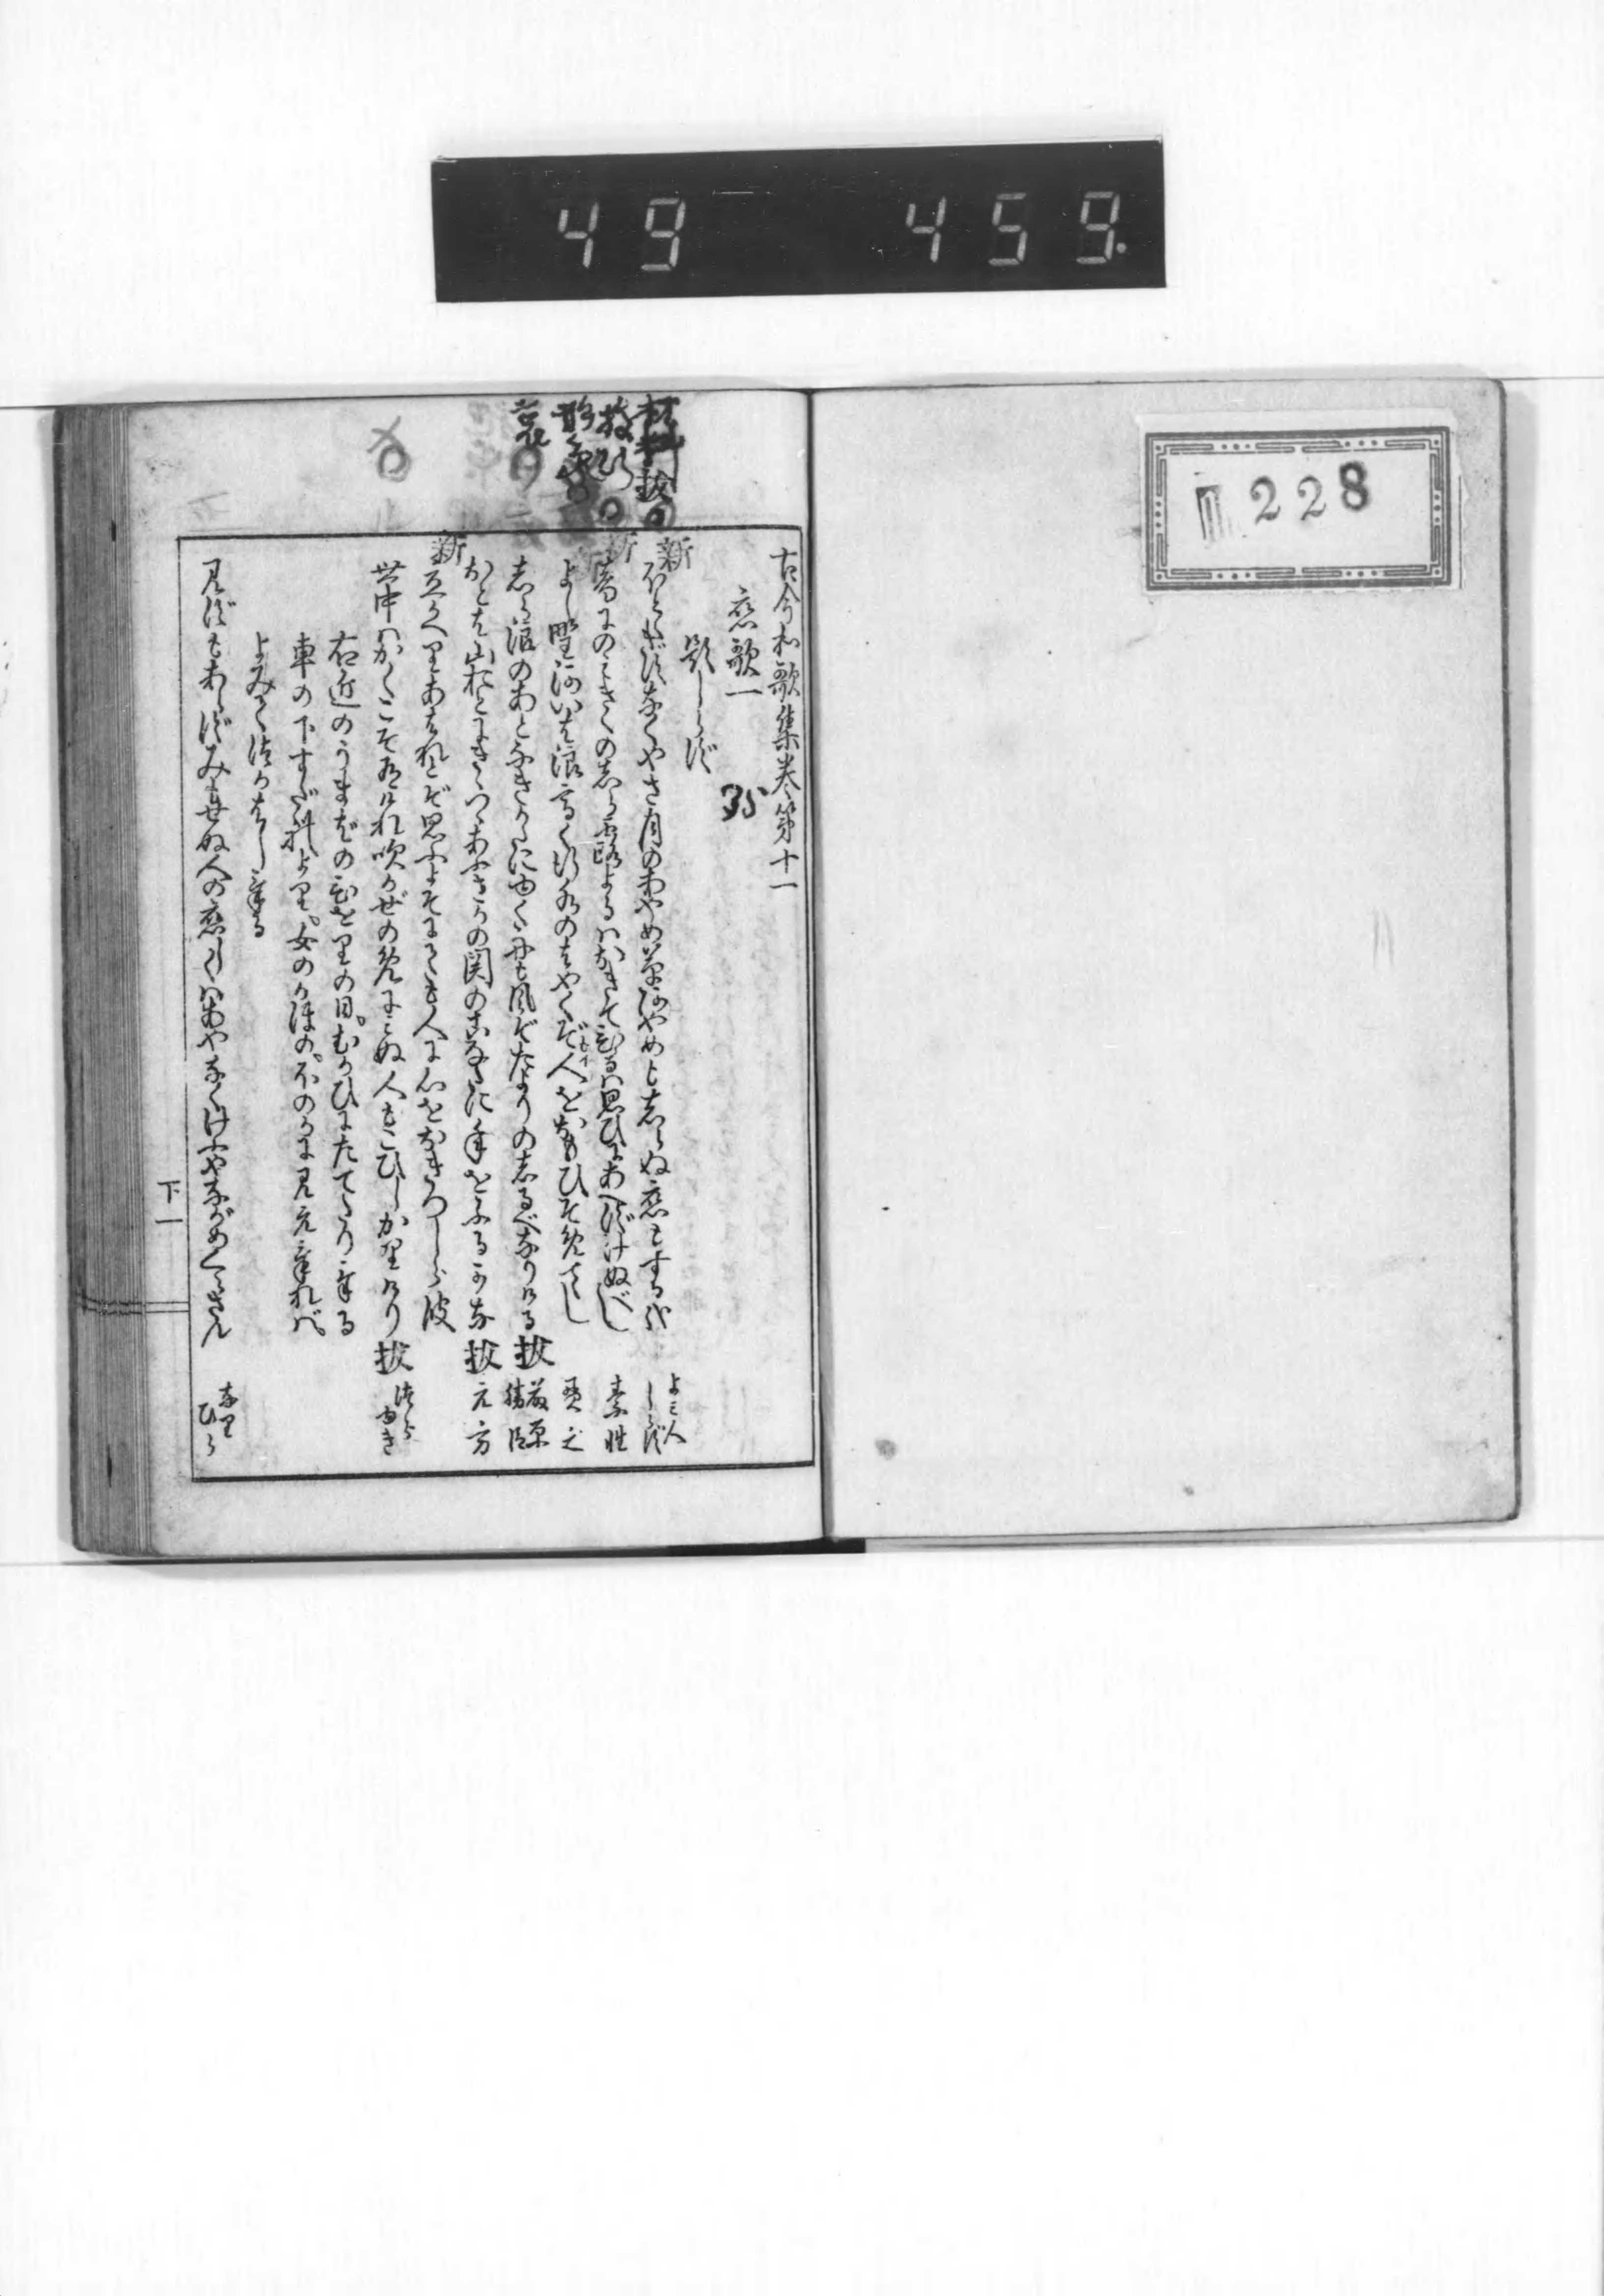 49 459.
228
古今和歌集巻第十一
恋歌一
35
題しらず
新
ほとゝぎすなくやさ月のあやめ草あやめもしらぬ恋もする哉
よみ人しらず
新
音にのみきくのしら露よるはおきてひるは思ひにあへずけぬべし
素性
新
よし野河いは浪高く行水のはやくぞ人をおもひそめてし
貫之
しら浪のあとなきかたにゆく舟も風ぞたよりのしるべなりける
抜
藤原勝臣
おとは山おとにきゝつゝあふさかの関のこなたに年をふるかな
抜
元方
新
立かへりあはれとぞ思ふよそにても人に心をおきつしら波
世中はかくこそ有けれ吹かぜのめに見ぬ人もこひしかりけり
抜
つらゆき
右近のうまばのひをりの日。むかひにたてたりける
車の下すだれより。女のかほの。ほのかに見えければ。
よみてつかはしける
見ずもあらずみもせぬ人の恋しくはあやなくけふやながめくらさん
なりひら
下一